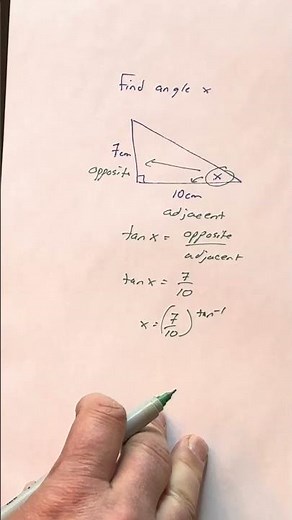 Find angle x
7cm
opposite
x
10cm
adjacent
tan x = opposite
adjacent
tan x = 7
10
x = (7
10) tan⁻¹